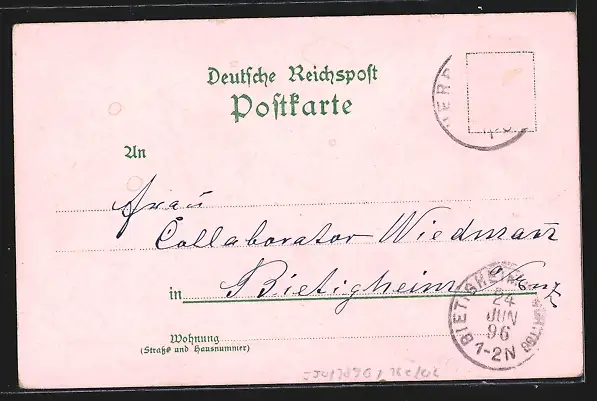 Deutsche Reichspost
Postkarte
HERR
An
Frau
Collaborator Wiedmann
in Bietigheim a/Enz
BIETIGHEIM
24
JUN
96
1-2N
Wohnung
(Straße und Hausnummer)